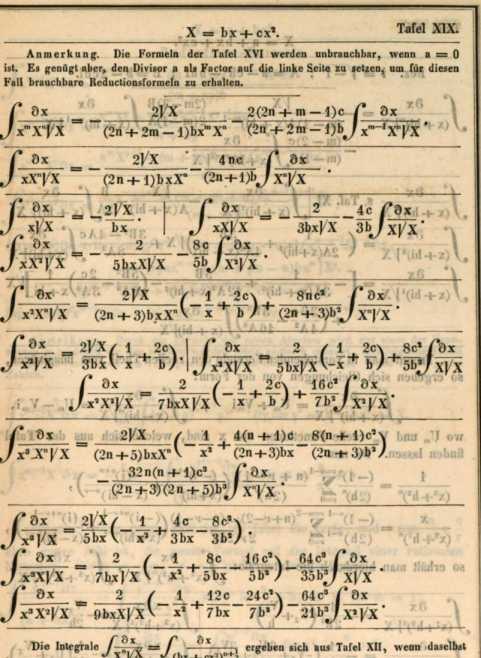 X = bx + cx². Tafel XIX.
Anmerkung. Die Formeln der Tafel XVI werden unbrauchbar, wenn a = 0
ist. Es genügt aber, den Divisor a als Factor auf die linke Seite zu setzen, um für diesen
Fall brauchbare Reductionsformeln zu erhalten.
∫ ∂x / (xᵐXⁿ√X) = − 2√X / ((2n + 2m − 1)bxᵐXⁿ) − 2(2n + m − 1)c / ((2n + 2m − 1)b) ∫ ∂x / (xᵐ⁻¹Xⁿ√X) .
∫ ∂x / (xXⁿ√X) = − 2√X / ((2n + 1)bxXⁿ) − 4nc / ((2n + 1)b) ∫ ∂x / (Xⁿ√X) .
∫ ∂x / (x√X) = − 2√X / (bx) . | ∫ ∂x / (xX√X) = − 2 / (3bx√X) − 4c / (3b) ∫ ∂x / (X√X) .
∫ ∂x / (xX²√X) = − 2 / (5bxX√X) − 8c / (5b) ∫ ∂x / (X²√X) .
∫ ∂x / (x²Xⁿ√X) = 2√X / ((2n + 3)bxXⁿ) (− 1/x + 2c/b) + 8nc² / ((2n + 3)b²) ∫ ∂x / (Xⁿ√X) .
∫ ∂x / (x²√X) = 2√X / (3bx) (− 1/x + 2c/b) . | ∫ ∂x / (x²X√X) = 2 / (5bx√X) (− 1/x + 2c/b) + 8c² / (5b²) ∫ ∂x / (X√X)
∫ ∂x / (x²X²√X) = 2 / (7bxX√X) (− 1/x + 2c/b) + 16c² / (7b²) ∫ ∂x / (X²√X) .
∫ ∂x / (x³Xⁿ√X) = 2√X / ((2n + 5)bxXⁿ) (− 1/x² + 4(n + 1)c / ((2n + 3)bx) − 8(n + 1)c² / ((2n + 3)b²))
− 32n(n + 1)c³ / ((2n + 3)(2n + 5)b³) ∫ ∂x / (Xⁿ√X) .
∫ ∂x / (x³√X) = 2√X / (5bx) (− 1/x² + 4c / (3bx) − 8c² / (3b²)) .
∫ ∂x / (x³X√X) = 2 / (7bx√X) (− 1/x² + 8c / (5bx) − 16c² / (5b²)) − 64c³ / (35b³) ∫ ∂x / (X√X) .
∫ ∂x / (x³X²√X) = 2 / (9bxX√X) (− 1/x² + 12c / (7bx) − 24c² / (7b²)) − 64c³ / (21b³) ∫ ∂x / (X²√X) .
Die Integrale ∫ ∂x / (Xⁿ√X) = ∫ ∂x / (bx + cx²)ⁿ⁺½ ergeben sich aus Tafel XII, wenn daselbst